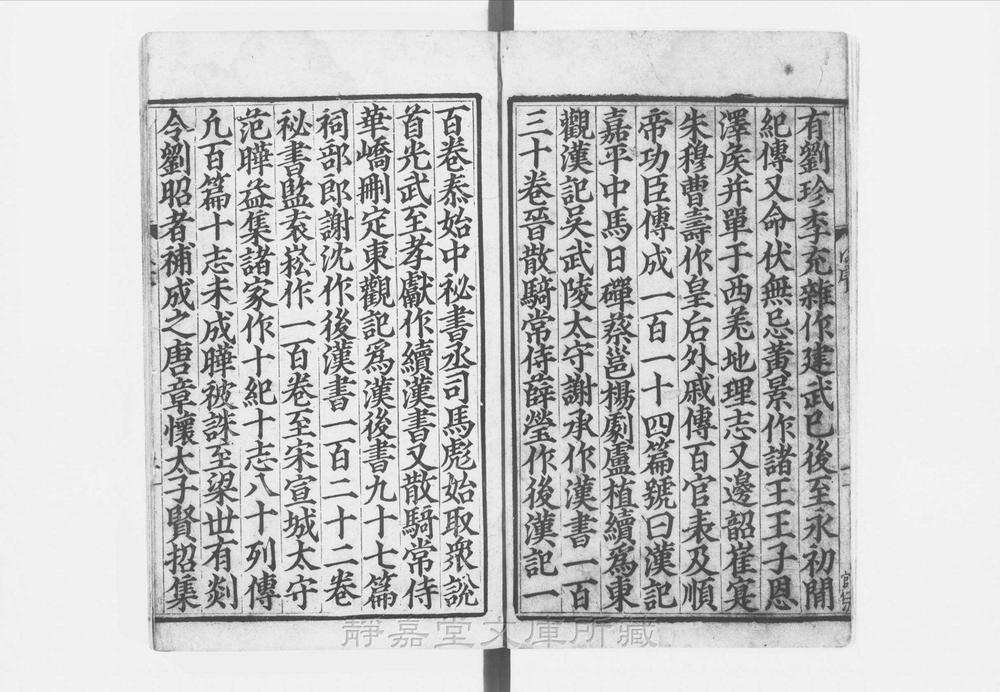 有劉珍李充雜作建武已後至永初間
紀傳又命伏無忌黃景作諸王王子恩
澤侯并單于西羌地理志又邊韶崔寔
朱穆曹壽作皇后外戚傳百官表及順
帝功臣傳成一百一十四篇號曰漢記
嘉平中馬日磾蔡邕楊劇盧植續爲東
觀漢記吳武陵太守謝承作漢書一百
三十卷晉散騎常侍薛瑩作後漢記一
百卷泰始中祕書丞司馬彪始取衆說
首光武至孝獻作續漢書又散騎常侍
華嶠刪定東觀記爲漢後書九十七篇
祠部郎謝沈作後漢書一百二十二卷
祕書監袁崧作一百卷至宋宣城太守
范曄益集諸家作十紀十志八十列傳
凢百篇十志未成曄被誅至梁世有剡
令劉昭者補成之唐章懷太子賢招集
靜嘉堂文庫所藏